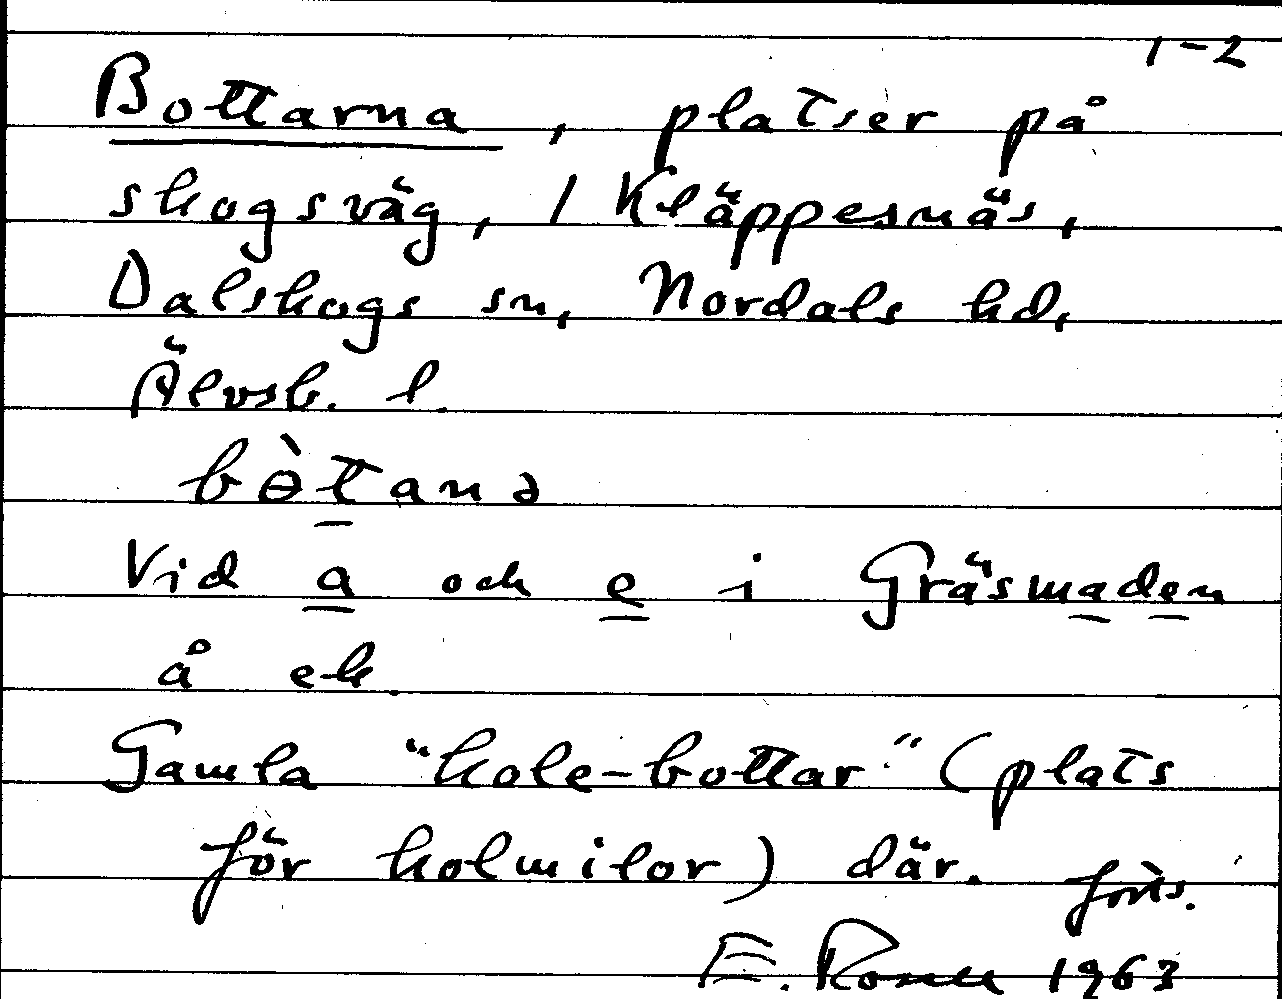 1-2
Bottarna, platser på
skogsväg, 1 Kläppesnäs,
Dalskogs sn, Nordals hd,
Älvsb. l.
bɵ̀tanə
Vid a och e i Gräsmaden
å ek.
Gamla "kole-bottar" (plats
för kolmilor) där. forts.
E. Rosell 1963